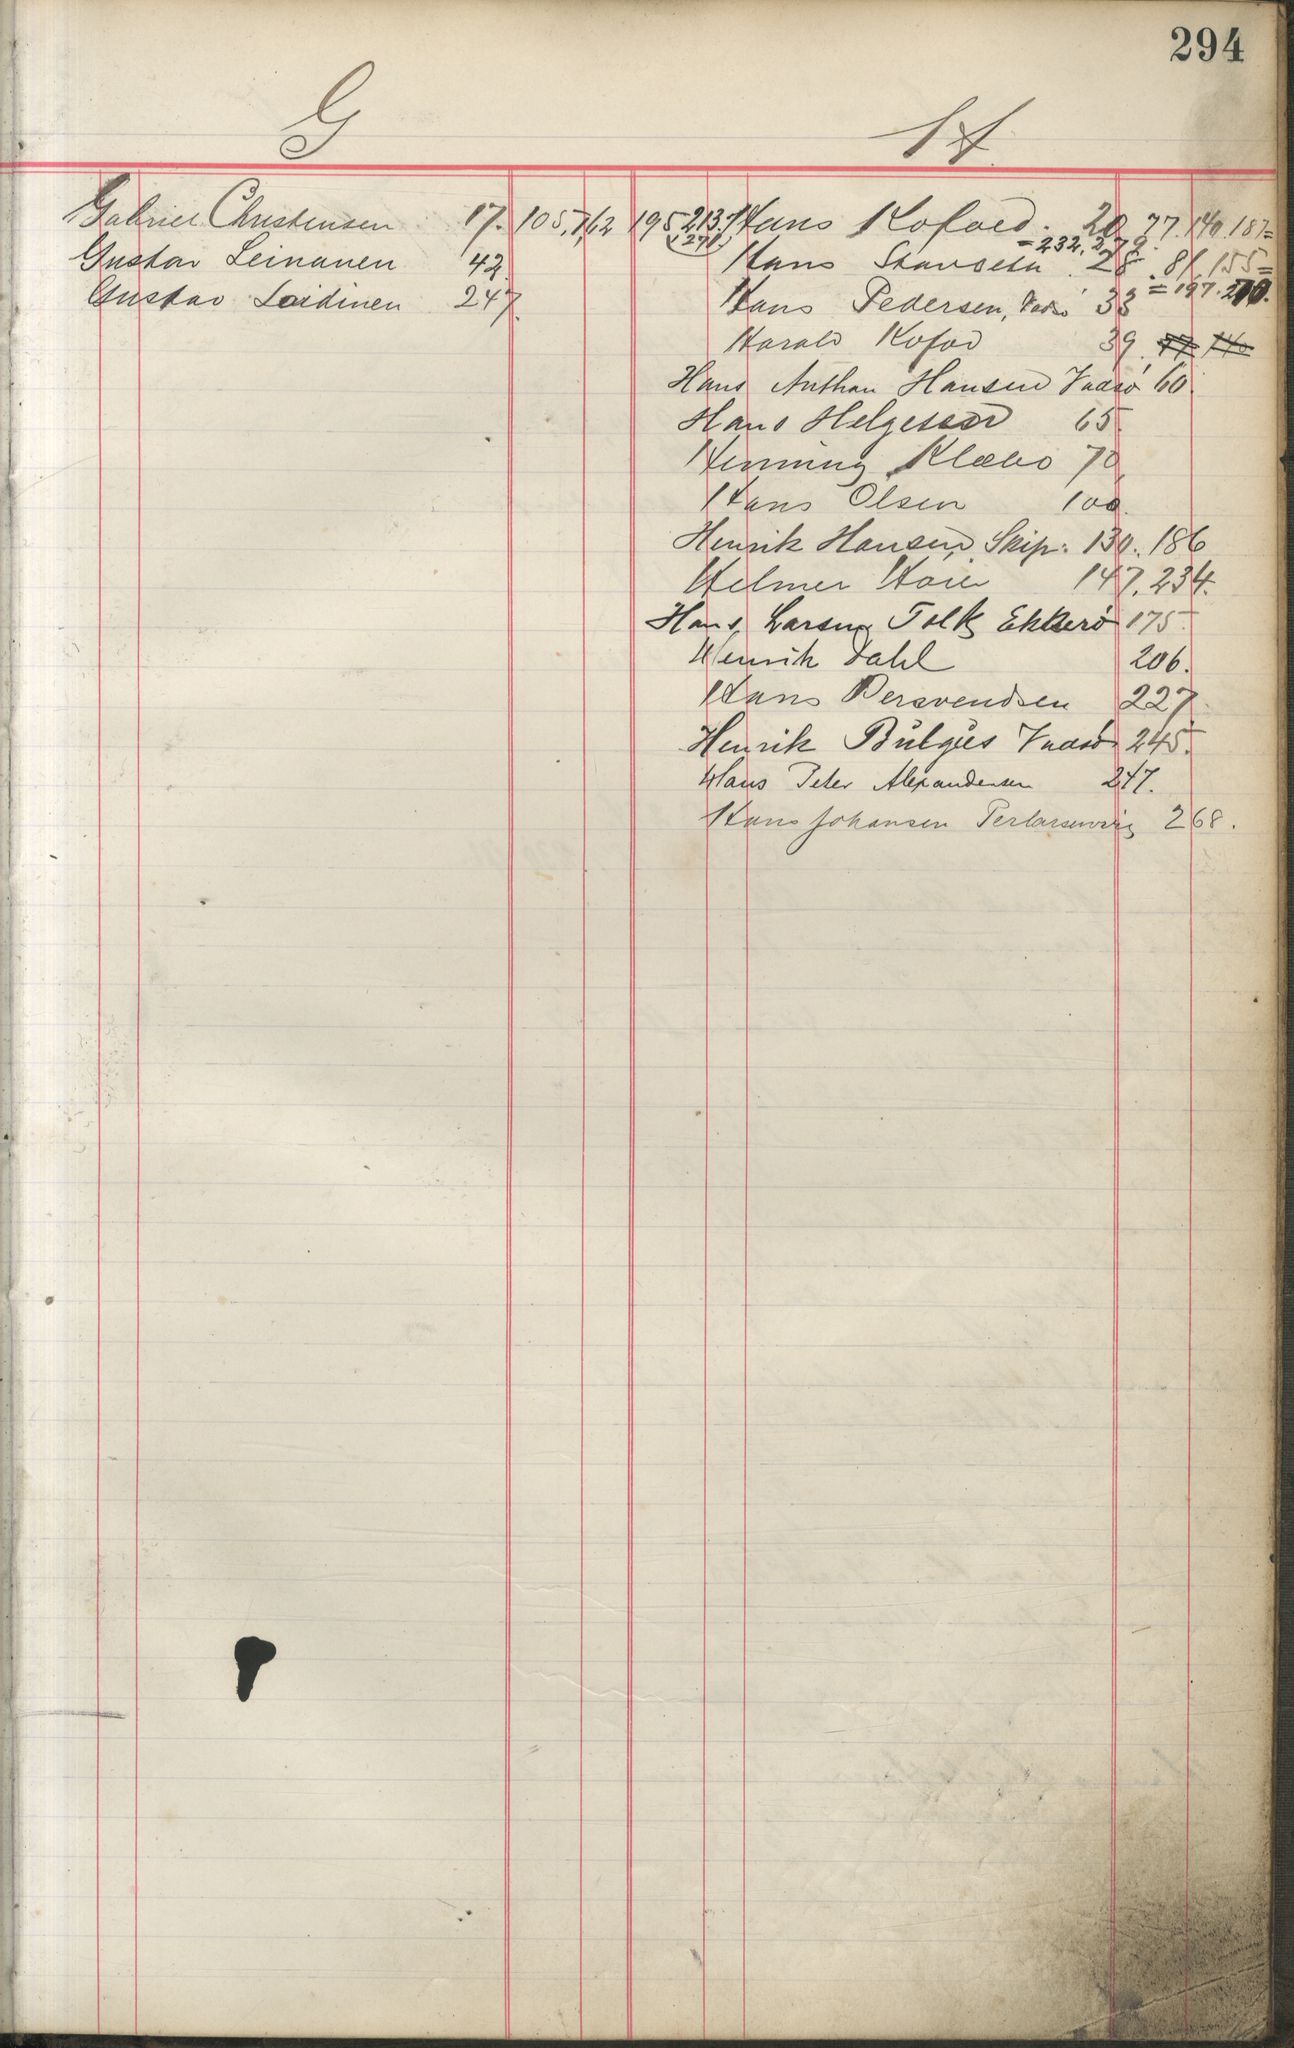 294
G
Gabriel Christensen 17. 105, 162 195, 213.
(271)
Gustav Leinanen 42.
Gustav Loidinen 247.
H.
Hans Kofoed. 20, 77. 140. 187=
=232, 272.
Hans 28. 81, 155=
=197. 270.
Hans Pedersen, Vadsö 33
Harald Kofod 39. 77 140
Hans Anthon Hansen Vadsö 60.
Hans Helgesen 65.
Henning Klæbo 70.
Hans Olsen 100.
Henrik Hansen, Skip: 130. 186
Helmer 147, 234.
Hans Larsen Tolk Ekkerö 175.
Henrik Dahl 206.
Hans Persvendsen 227.
Henrik Vadsö 245.
Hans Peter Alexandersen 247.
Hans Johansen Perlarsenvig 268.